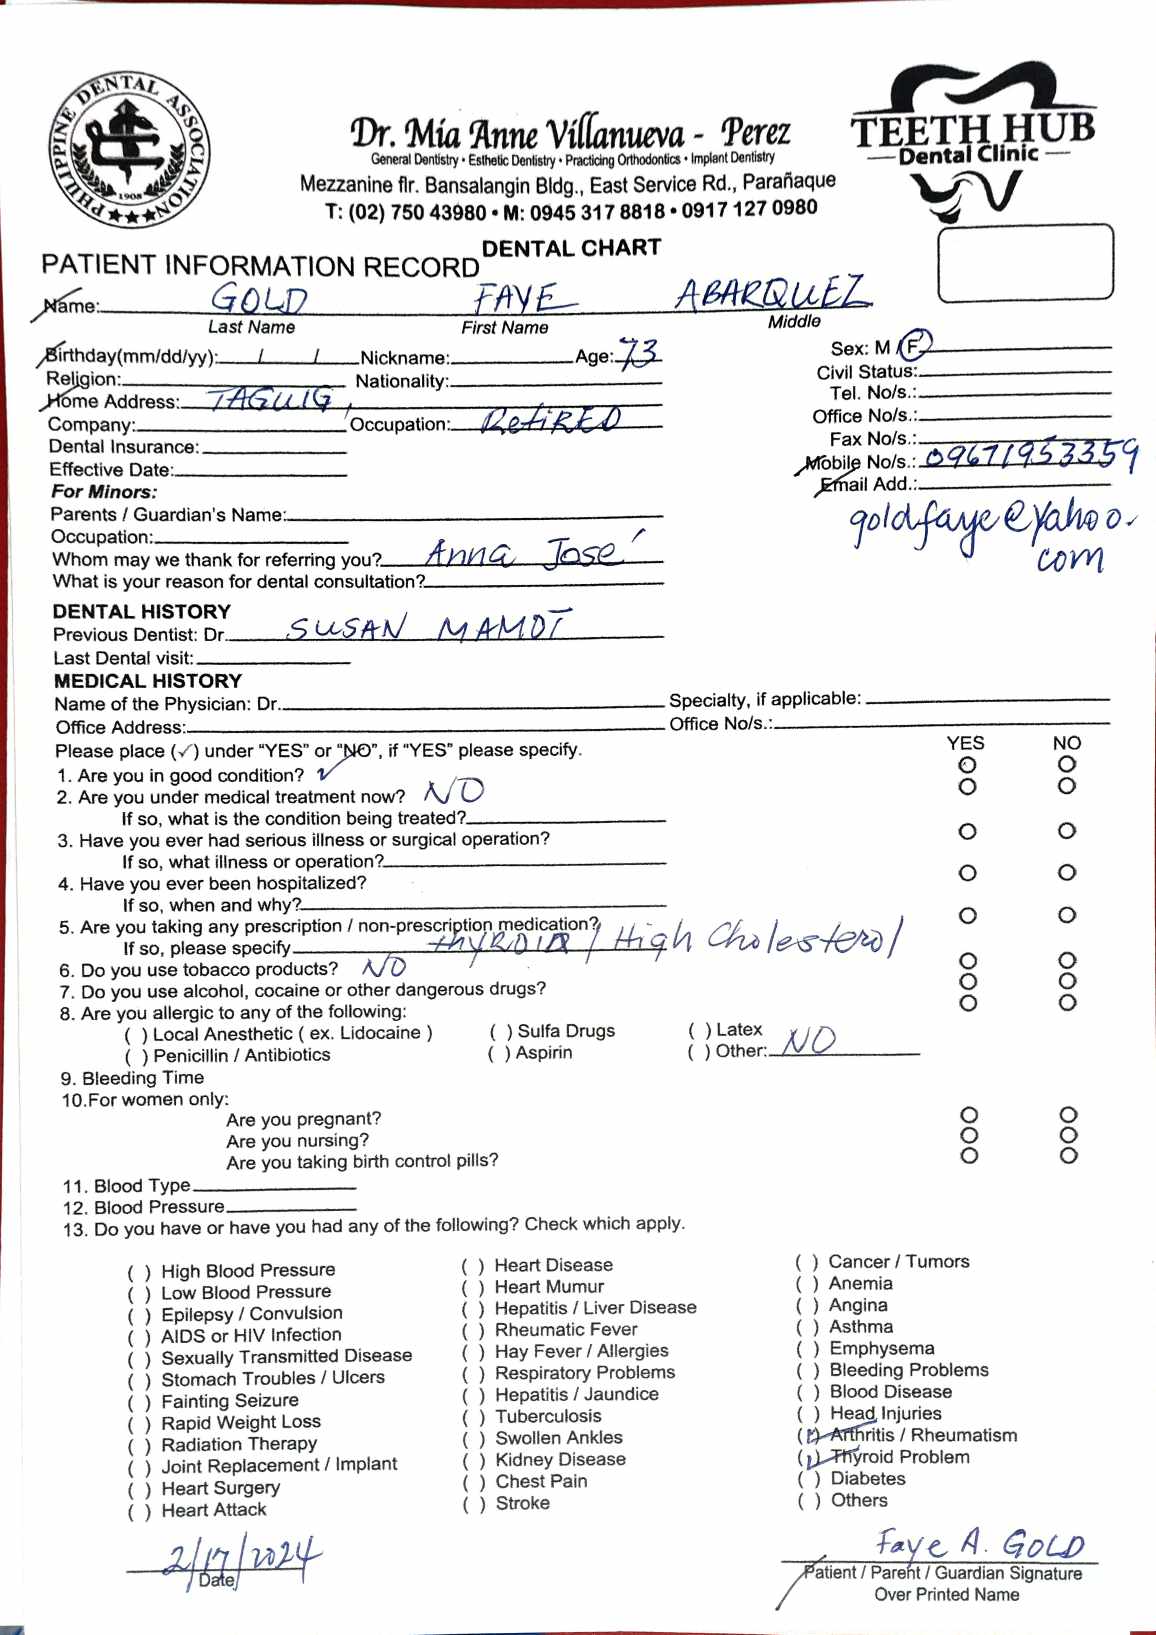 PHILIPPINE DENTAL ASSOCIATION
1908
Dr. Mia Anne Villanueva - Perez
General Dentistry • Esthetic Dentistry • Practicing Orthodontics • Implant Dentistry
Mezzanine flr. Bansalangin Bldg., East Service Rd., Parañaque
T: (02) 750 43980 • M: 0945 317 8818 • 0917 127 0980
TEETH HUB
Dental Clinic
DENTAL CHART
PATIENT INFORMATION RECORD
Name: GOLD FAYE ABARQUEZ
Last Name First Name Middle
Birthday(mm/dd/yy): / / Nickname: Age: 73 Sex: M / F
Religion: Nationality: Civil Status:
Home Address: TAGUIG, Tel. No/s.:
Company: Occupation: RetiRED Office No/s.:
Dental Insurance: Fax No/s.:
Effective Date: Mobile No/s.: 09671953359
For Minors: Email Add.:
goldfaye@yahoo.
com
Parents / Guardian's Name:
Occupation:
Whom may we thank for referring you? Anna José
What is your reason for dental consultation?
DENTAL HISTORY
Previous Dentist: Dr. SUSAN MAMOT
Last Dental visit:
MEDICAL HISTORY
Name of the Physician: Dr. Specialty, if applicable:
Office Address: Office No/s.:
Please place (✓) under "YES" or "NO", if "YES" please specify. YES NO
1. Are you in good condition? ✓
2. Are you under medical treatment now? NO
If so, what is the condition being treated?
3. Have you ever had serious illness or surgical operation?
If so, what illness or operation?
4. Have you ever been hospitalized?
If so, when and why?
5. Are you taking any prescription / non-prescription medication?
If so, please specify thyROID / High Cholesterol
6. Do you use tobacco products? NO
7. Do you use alcohol, cocaine or other dangerous drugs?
8. Are you allergic to any of the following:
( ) Local Anesthetic ( ex. Lidocaine ) ( ) Sulfa Drugs ( ) Latex
( ) Penicillin / Antibiotics ( ) Aspirin ( ) Other: NO
9. Bleeding Time
10.For women only:
Are you pregnant?
Are you nursing?
Are you taking birth control pills?
11. Blood Type
12. Blood Pressure
13. Do you have or have you had any of the following? Check which apply.
( ) High Blood Pressure ( ) Heart Disease ( ) Cancer / Tumors
( ) Low Blood Pressure ( ) Heart Mumur ( ) Anemia
( ) Epilepsy / Convulsion ( ) Hepatitis / Liver Disease ( ) Angina
( ) AIDS or HIV Infection ( ) Rheumatic Fever ( ) Asthma
( ) Sexually Transmitted Disease ( ) Hay Fever / Allergies ( ) Emphysema
( ) Stomach Troubles / Ulcers ( ) Respiratory Problems ( ) Bleeding Problems
( ) Fainting Seizure ( ) Hepatitis / Jaundice ( ) Blood Disease
( ) Rapid Weight Loss ( ) Tuberculosis ( ) Head Injuries
( ) Radiation Therapy ( ) Swollen Ankles (✓) Arthritis / Rheumatism
( ) Joint Replacement / Implant ( ) Kidney Disease (✓) Thyroid Problem
( ) Heart Surgery ( ) Chest Pain ( ) Diabetes
( ) Heart Attack ( ) Stroke ( ) Others
2/17/2024 Faye A. GOLD
Date Patient / Parent / Guardian Signature
Over Printed Name